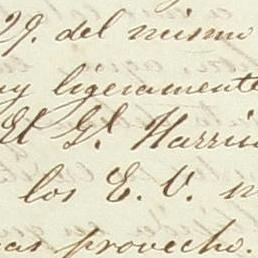 29. del mismo
muy ligeramente
El Gl. Harris
los E. U. n
mas provecho.